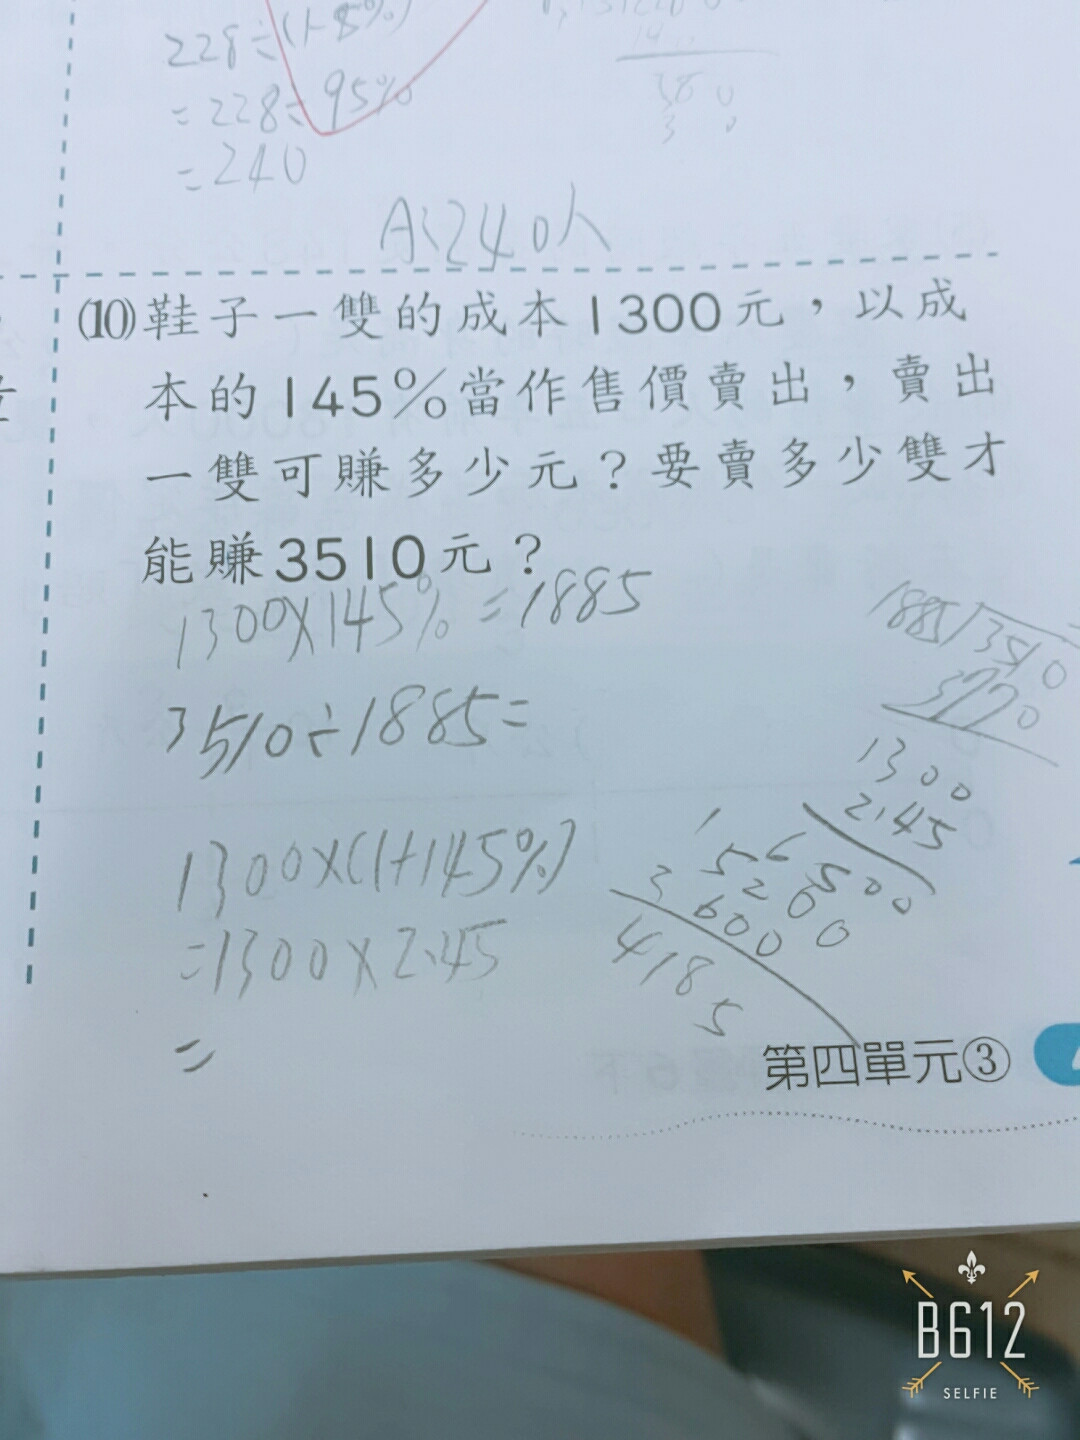 228÷(1-5%)
=228÷95%
=240
A:240人
⑽鞋子一雙的成本1300元，以成
本的145%當作售價賣出，賣出
一雙可賺多少元？要賣多少雙才
能賺3510元？
1300×145%=1885
3510÷1885=
1300×(1+145%)
=1300×2.45
=
1885
3510
3770
1300
2.45
6500
5200
4185
第四單元③
B612
SELFIE